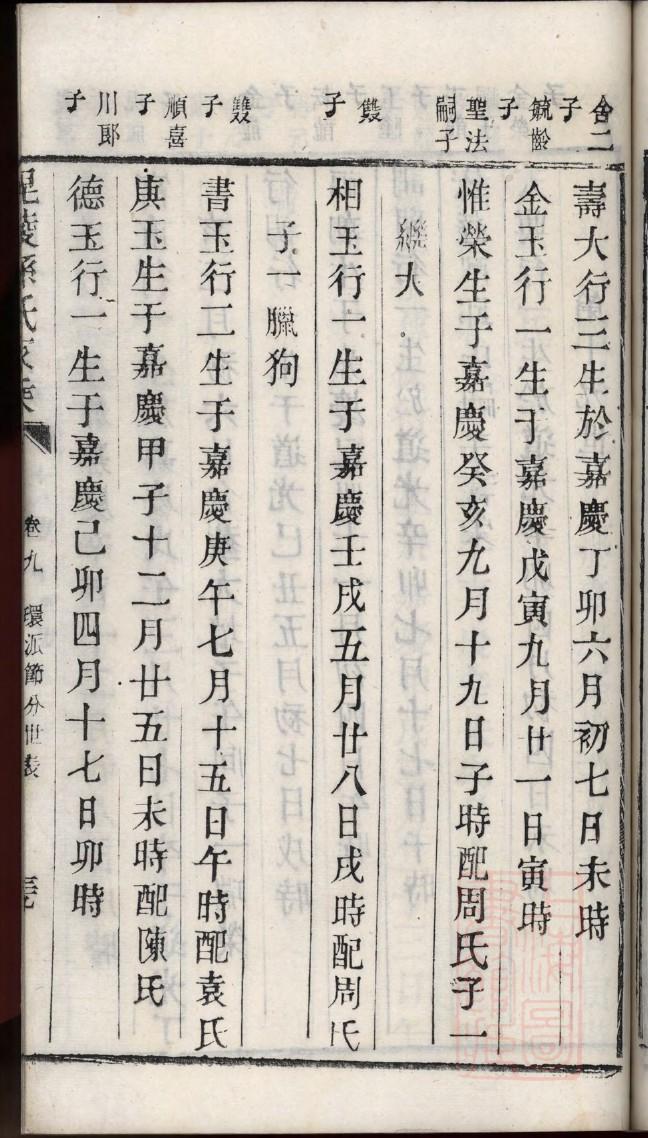 舍二子
壽大行三生於嘉慶丁卯六月初七日未時
毓齡子
金玉行一生于嘉慶戊寅九月廿一日寅時
聖法嗣子
惟榮生于嘉慶癸亥九月十九日子時配周氏子一
大
雙子
相玉行一生于嘉慶壬戌五月廿八日戌時配周氏
子一臘狗
雙子
書玉行二生于嘉慶庚午七月十五日午時配袁氏
順喜子
庚玉生于嘉慶甲子十二月廿五日未時配陳氏
川郎子
德玉行一生于嘉慶己卯四月十七日卯時
毘陵孫氏家乘
卷九
環派節分世表